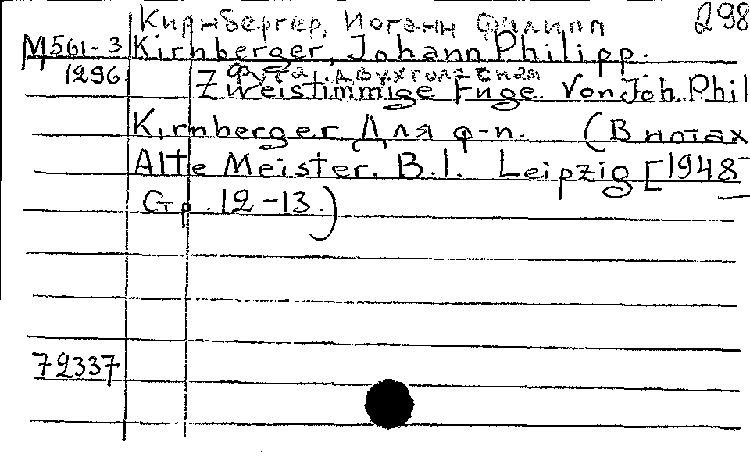 298
Кирнбергер, Иоганн Филипп
М 561-3 Kirnberger, Johann Philipp.
1296 Фуга двухголосная
Zweistimmige Fuge. Von Joh. Phil
Kirnberger Для ф-п. (В нотах
Alte Meister. B.I. Leipzig [1948
Стр. 12-13.)
72337